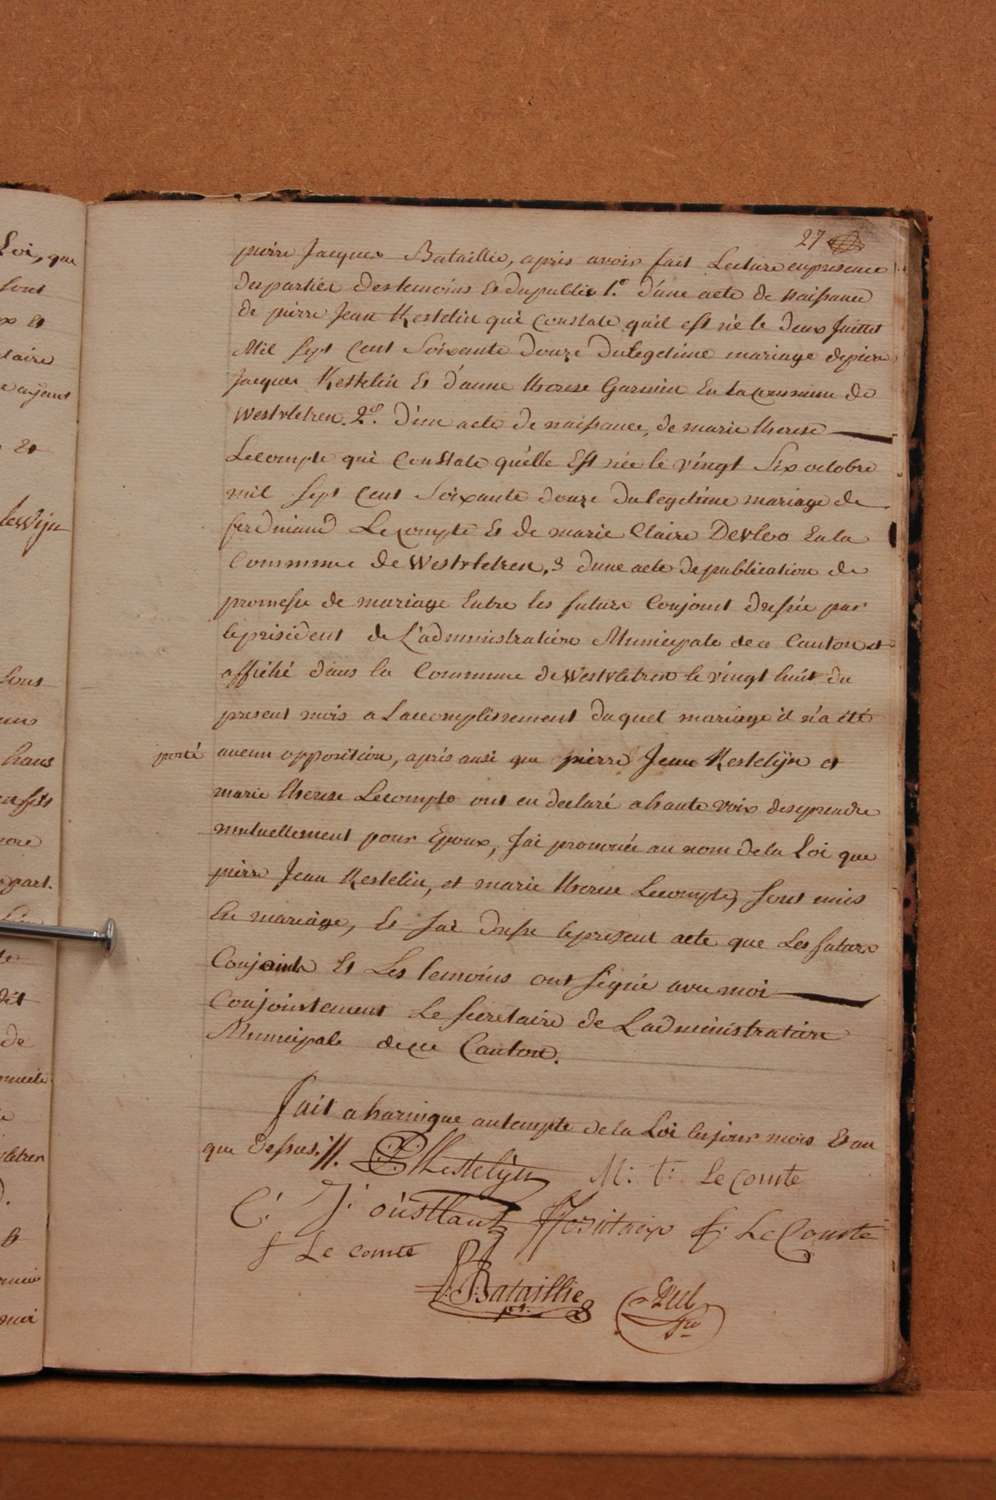 27
pierre Jacques Bataillie, apres avoir fait Lecture en presence
des partiés des temoins Et du public 1.° d'une acte de naissance
de pierre Jean Kestelin qui Constate quil est né le deux Juillet
Mil Sept Cent Soixante douze du legetime mariage de pierre
Jacques Kestelin Et d'anne therese Garmin En la Commune de
Westvletren. 2.° d'une acte de naissance, de marie therese
Lecompte qui Constate qu'elle Est née le vingt Six octobre
mil Sept Cent Soixante douze du legetime mariage de
ferdinand Lecompte Et de marie Claire Devloo En la
Commune de Westvletren, 3 d'une acte de publication de
promesse de mariage Entre les future Conjoint dressée par
le president de L'administration Municipale de ce Canton et
affiché dans la Commune de Westvletren le vingt huit du
present mois a L'accomplissement duquel mariage il n'a été
porté aucun opposition, apris ausi que pierre Jean Kestelijn et
marie therese Lecompte ont eu declaré a haute voix de se prendre
mutuellement pour Epoux, J'ai prononcée au nom de la Loi que
pierre Jean Kestelin, et marie therese Lecompte, Sont unis
En mariage, Et J'ai dresse le present acte que Les futurs
Conjoints Et Les temoins ont Signé avec moi
Conjointement Le Secretaire de L'administration
Municipale de ce Canton.
fait a haringue au temple de la Loi les jour mois Et an
que dessus.//. Kestelijn M: t: Le Comte
C: J: oústlant f: Le Comte
f Le comte
Bataillie